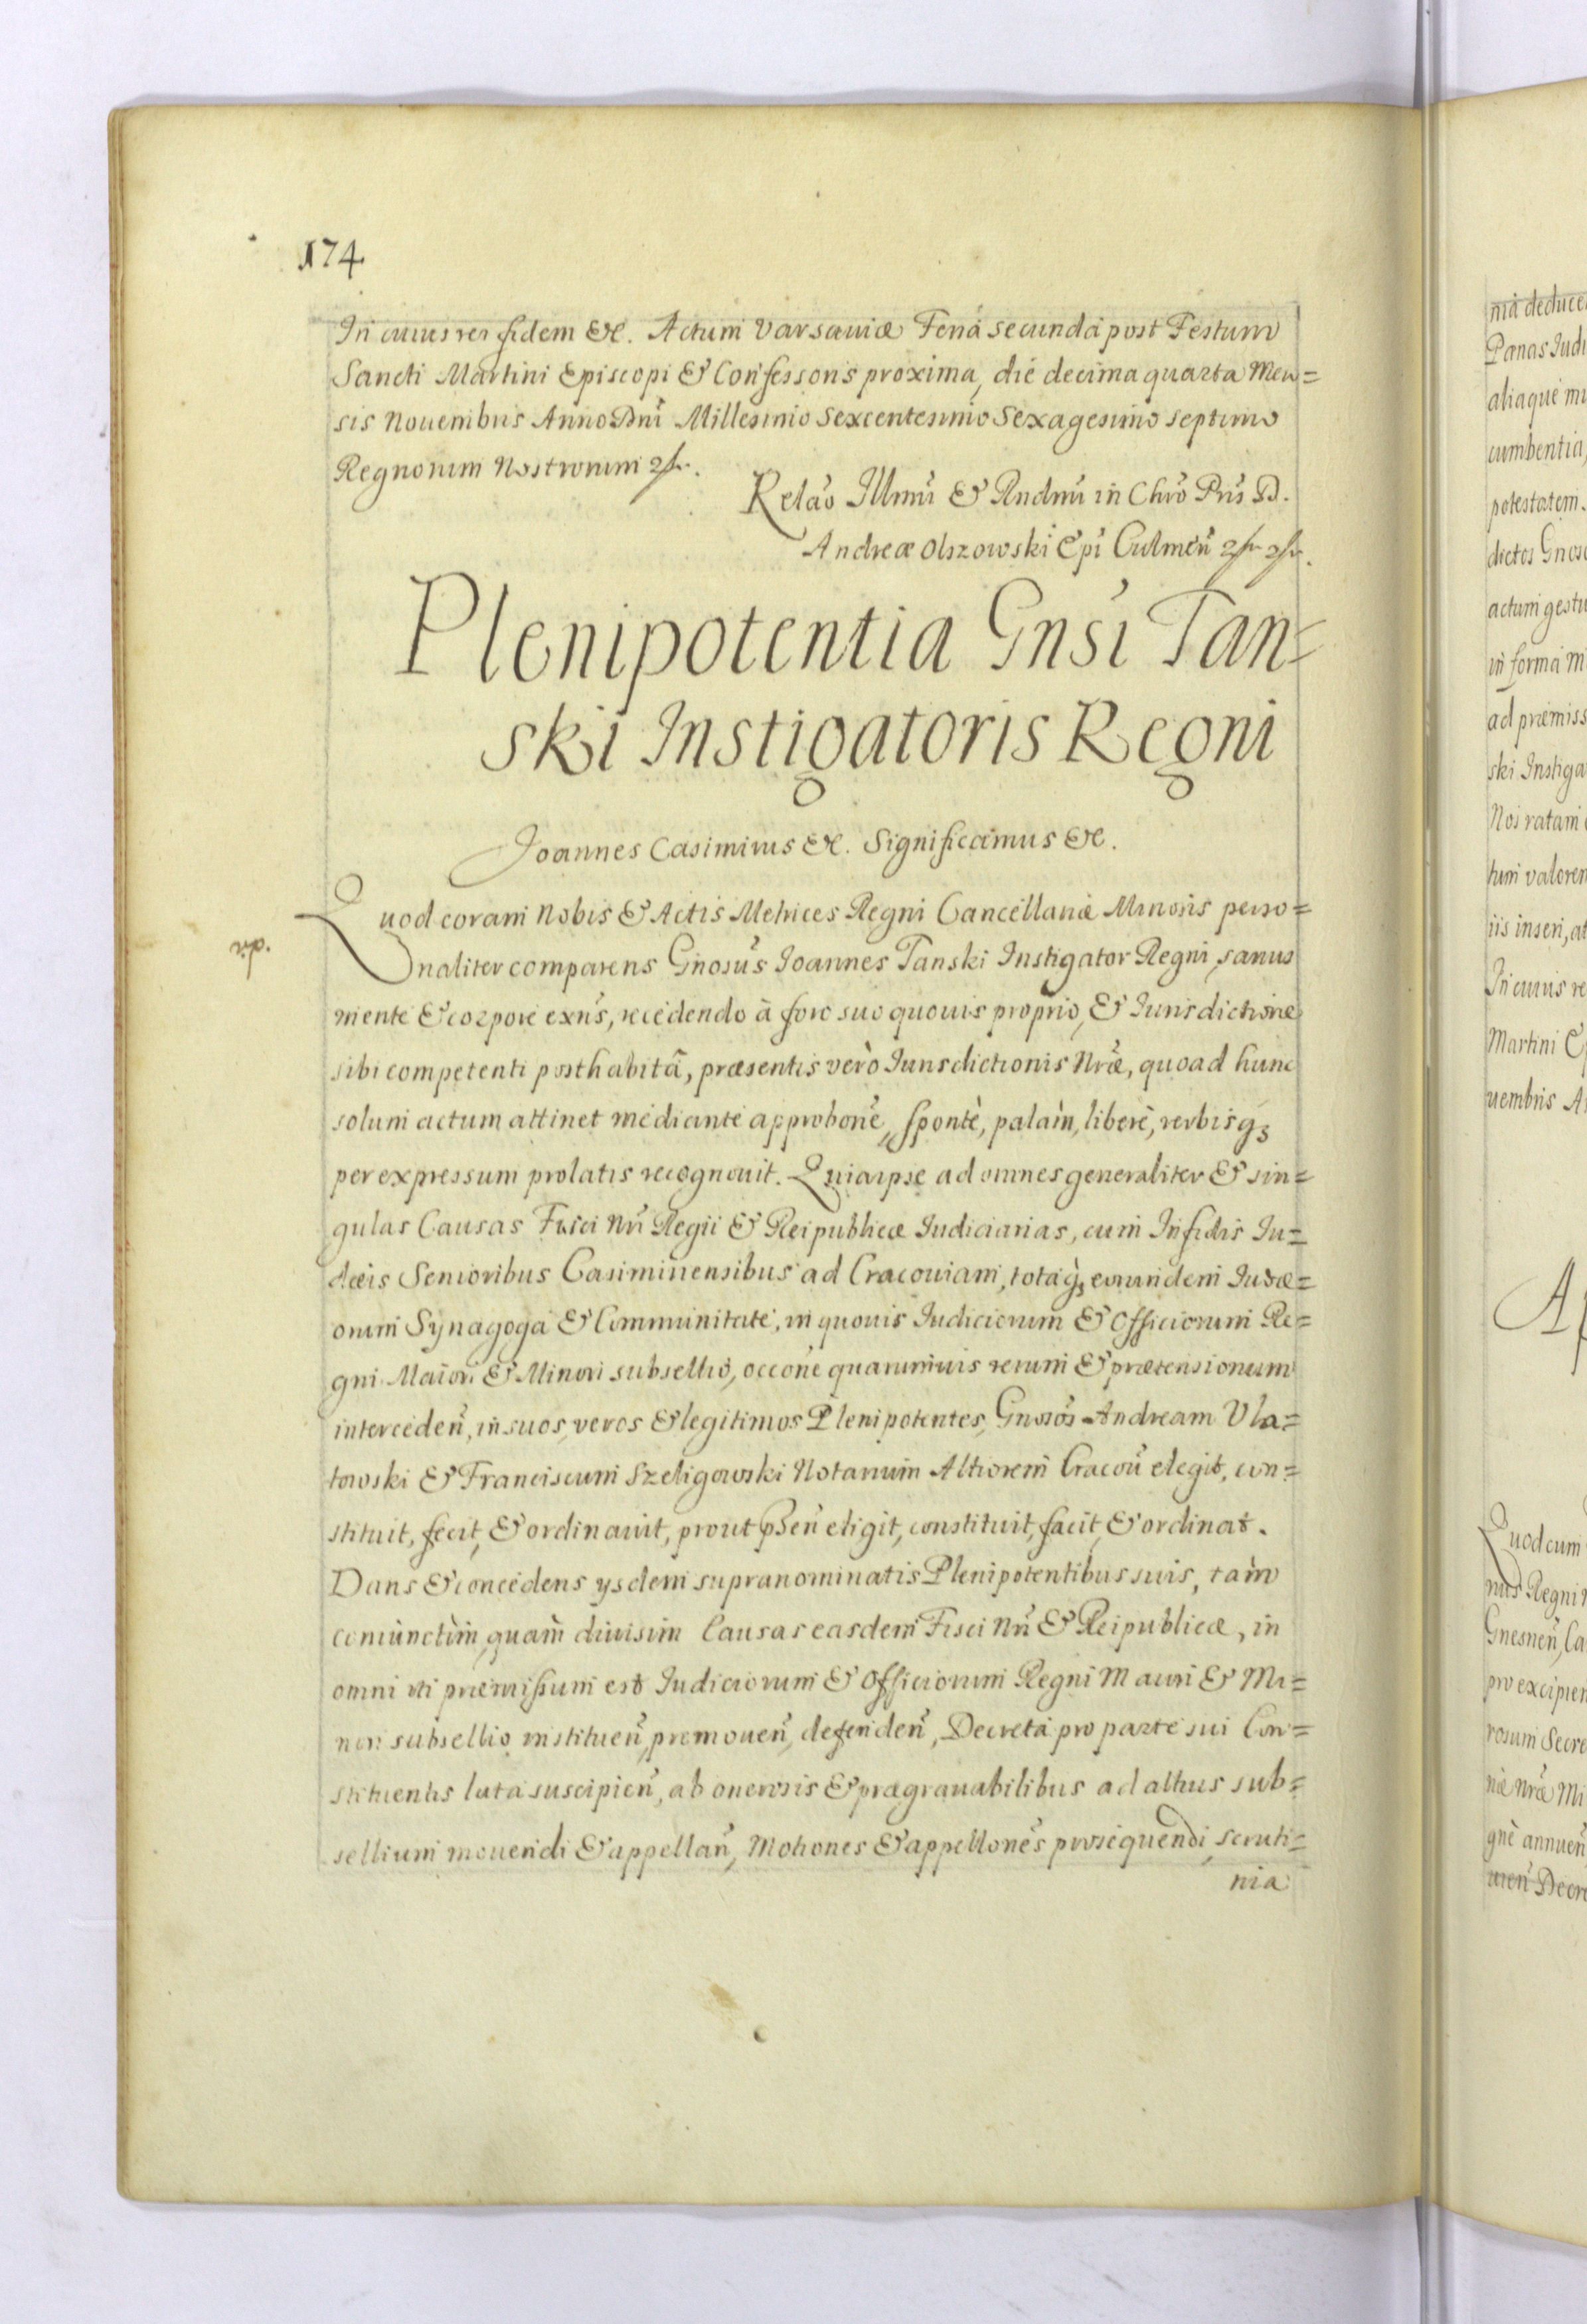 174
In cuius rei fidem &c. Actum Varsaviæ Feriâ secundâ post Festum
Sancti Martini Episcopi & Confessoris proxima, die decima quarta Men=
sis Nouembris Anno Dnĩ Millesimo Sexcentesimo Sexagesimo septimo
Regnorum Nostrorum
Relaõ Illmĩ & Rndmĩ in Chrõ Prĩs D.
Andreæ Olszowski Epĩ Culmeñ
Plenipotentia Gnsi Tan=
ski Instigatoris Regni
Joannes Casimirus &c. Significamus &c.
Quod coram Nobis & Actis Metrices Regni Cancellariæ Minoris perso=
naliter comparens Gnosũs Joannes Tanski Instigator Regni, sanus
mente & corpore exñs, recedendo à foro suo quouis proprio, & Iurisdictione
sibi competenti posthabitâ, præsentis verò Iurisdictionis Nræ, quoad hunc
solum actum attinet mediante approboñe, spontè, palàm, liberè, verbisq3
per expressum prolatis recognouit. Quia ipse ad omnes generaliter & sin=
gulas Causas Fisci Nrĩ Regii & Reipublicæ Iudiciarias, cum Infidis Iu=
dæis Senioribus Casimiriensibus ad Cracouiam, totaq3 eorundem Iudæ=
orum Synagoga & Communitate, in quouis Iudiciorum & Officiorum Re=
gni Maiori & Minori subsellio, occoñe quarumuis rerum & prætensionum
intercedeñ, in suos, veros & legitimos Plenipotentes, Gnosos Andream Vla=
towski & Franciscum Szeligowski Notarium Altiorem Cracoũ elegit, con=
stituit, fecit, & ordinauit, prout pseñ eligit, constituit, facit, & ordinat.
Dans & concedens ysdem supranominatis Plenipotentibus suis, tàm
coniunctìm, quàm diuisim Causas easdem Fisci Nrĩ & Reipublicæ, in
omni uti præmissum est Iudiciorum & Officiorum Regni Maiori & Mi=
nori subsellio institueñ, promoueñ, defendeñ, Decreta pro parte sui Con=
stituentis lata suscipieñ, ab onerosis & prægrauabilibus ad altius sub=
sellium mouendi & appellañ, Motiones & appelloñes prosequendi, scruti=
nia